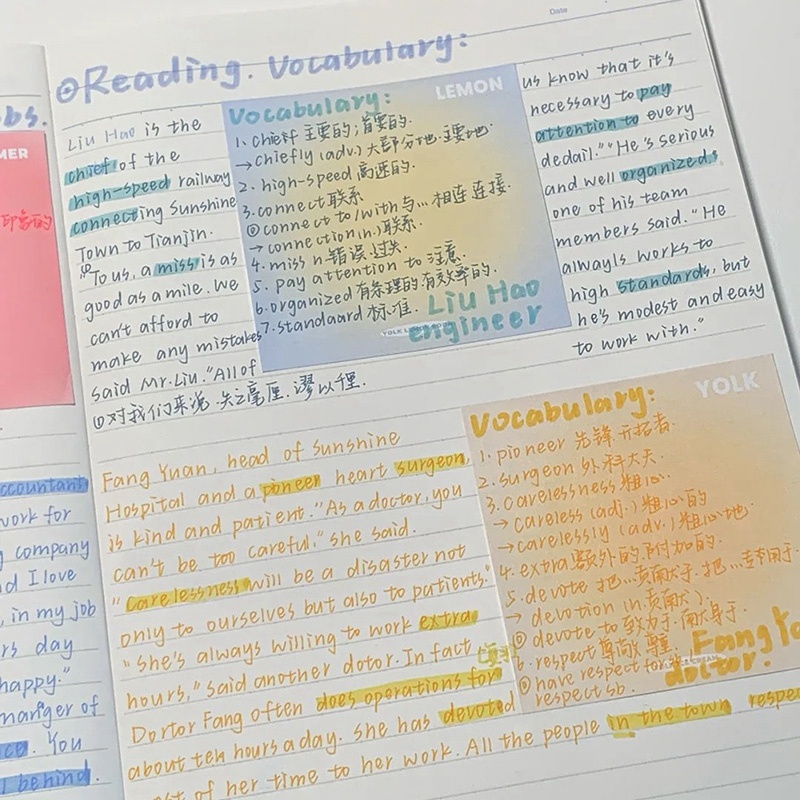 Date
⊙Reading. Vocabulary:
Liu Hao is the
chief of the
high-speed railway
connecting Sunshine
Town to Tianjin.
①
"To us, a miss is as
good as a mile. We
can't afford to
make any mistakes
said Mr. Liu. "All of
①对我们来说,失之毫厘,谬以千里.
LEMON
Vocabulary:
1. chief 主要的;首要的.
→chiefly (adv.) 大部分地.主要地.
2. high-speed 高速的.
3. connect 联系
◎ connect to/with 与...相连 连接.
→ connection (n.) 联系.
4. miss n. 错误.过失.
5. pay attention to 注意.
6. organized 有条理的.有效率的.
7. standaard 标准.
Liu Hao
engineer
us know that it's
necessary to pay
attention to every
dedail." "He's serious
and well organized,
one of his team
members said. "He
alwayls works to
high standards, but
he's modest and easy
to work with."
Fang Yuan, head of Sunshine
Hospital and a pioneer heart surgeon,
is kind and patient. "As a doctor, you
can't be too careful," she said.
"carelessness will be a disaster not
only to ourselves but also to patients."
"She's always willing to work extra
hours," said another dotor. In fact
Dortor Fang often does operations for
about ten hours a day. She has devoted
of her time to her work. All the people in the town respe
YOLK
Vocabulary:
1. pioneer 先锋 开拓者.
2. surgeon 外科大夫.
3. carelessness 粗心.
→ careless (adj.) 粗心的
→carelessly (adv.) 粗心地.
4. extra 额外的.附加的.
5. devote 把...贡献于.把...专用于
→ devotion (n.贡献).
◎ devote to 致力于.献身于.
6. respect 尊敬 尊重.
◎ have respect for
respect sb.
Fang Y
doctor.
obs.
MER
accountant
work for
company
d I love
, in my job
rs day
happy."
manger of
ce. You
behind.